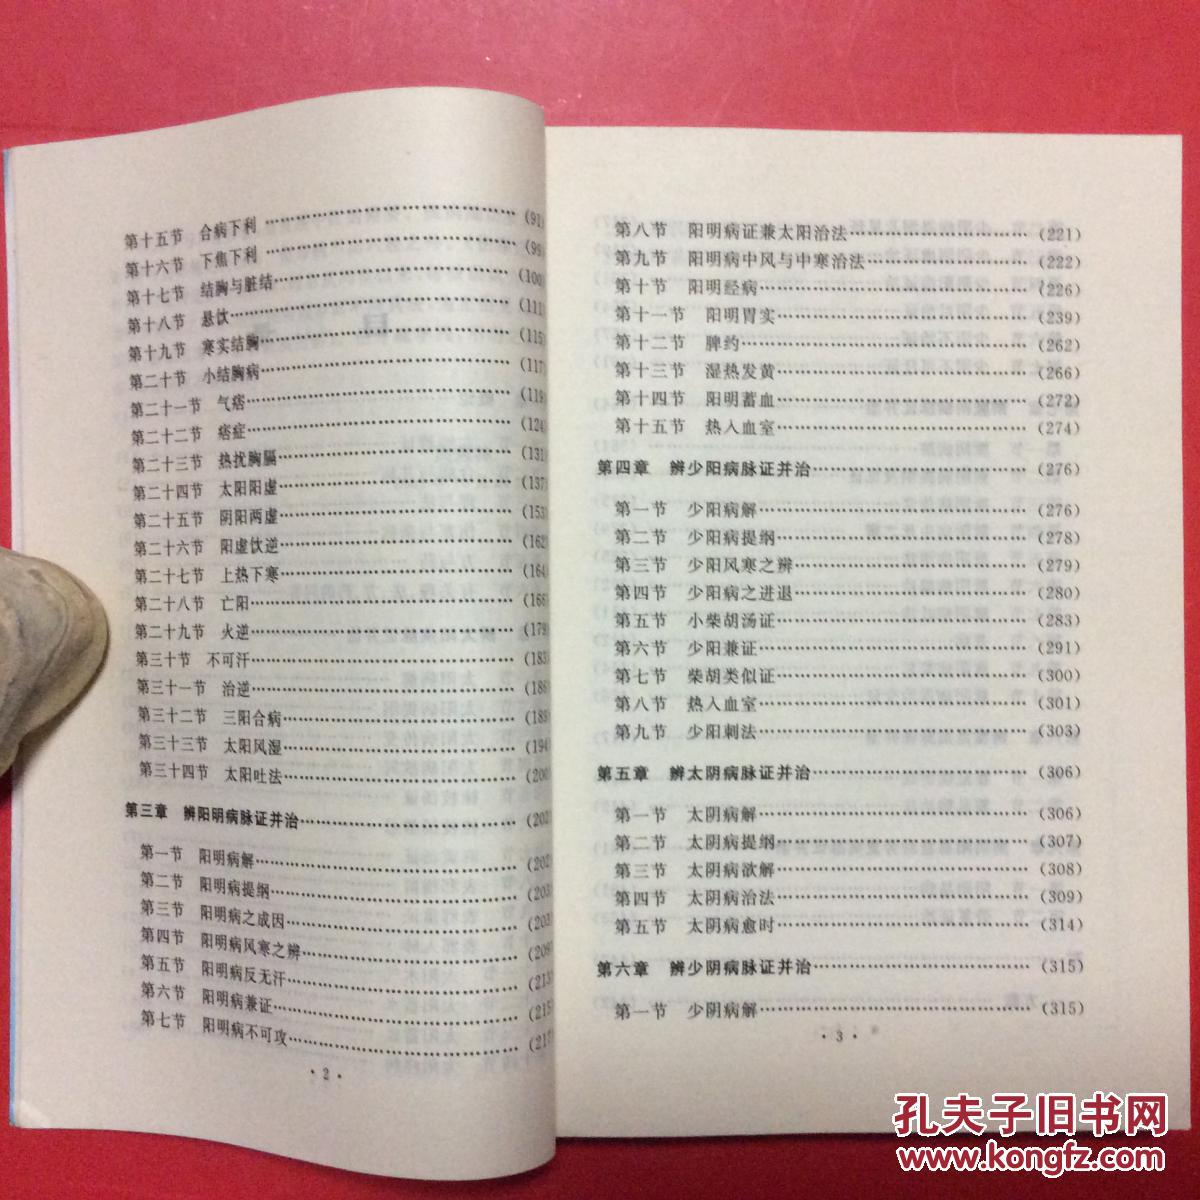 第十五节 合病下利……(91)
第十六节 下焦下利……(99)
第十七节 结胸与脏结……(100)
第十八节 悬饮……(111)
第十九节 寒实结胸……(115)
第二十节 小结胸病……(117)
第二十一节 气痞……(119)
第二十二节 痞症……(124)
第二十三节 热扰胸膈……(131)
第二十四节 太阳阳虚……(137)
第二十五节 阴阳两虚……(153)
第二十六节 阳虚饮逆……(162)
第二十七节 上热下寒……(164)
第二十八节 亡阳……(166)
第二十九节 火逆……(179)
第三十节 不可汗……(183)
第三十一节 治逆……(186)
第三十二节 三阳合病……(189)
第三十三节 太阳风湿……(194)
第三十四节 太阳吐法……(200)
第三章 辨阳明病脉证并治……(202)
第一节 阳明病解……(202)
第二节 阳明病提纲……(203)
第三节 阳明病之成因……(203)
第四节 阳明病风寒之辨……(209)
第五节 阳明病反无汗……(213)
第六节 阳明病兼证……(215)
第七节 阳明病不可攻……(217)
·2·
第八节 阳明病证兼太阳治法……(221)
第九节 阳明病中风与中寒治法……(222)
第十节 阳明经病……(226)
第十一节 阳明胃实……(239)
第十二节 脾约……(262)
第十三节 湿热发黄……(266)
第十四节 阳明蓄血……(272)
第十五节 热入血室……(274)
第四章 辨少阳病脉证并治……(276)
第一节 少阳病解……(276)
第二节 少阳病提纲……(278)
第三节 少阳风寒之辨……(279)
第四节 少阳病之进退……(280)
第五节 小柴胡汤证……(283)
第六节 少阳兼证……(291)
第七节 柴胡类似证……(300)
第八节 热入血室……(301)
第九节 少阳刺法……(303)
第五章 辨太阴病脉证并治……(306)
第一节 太阴病解……(306)
第二节 太阴病提纲……(307)
第三节 太阴病欲解……(308)
第四节 太阴病治法……(309)
第五节 太阴病愈时……(314)
第六章 辨少阴病脉证并治……(315)
第一节 少阴病解……(315)
·3·
孔夫子旧书网
www.kongfz.com